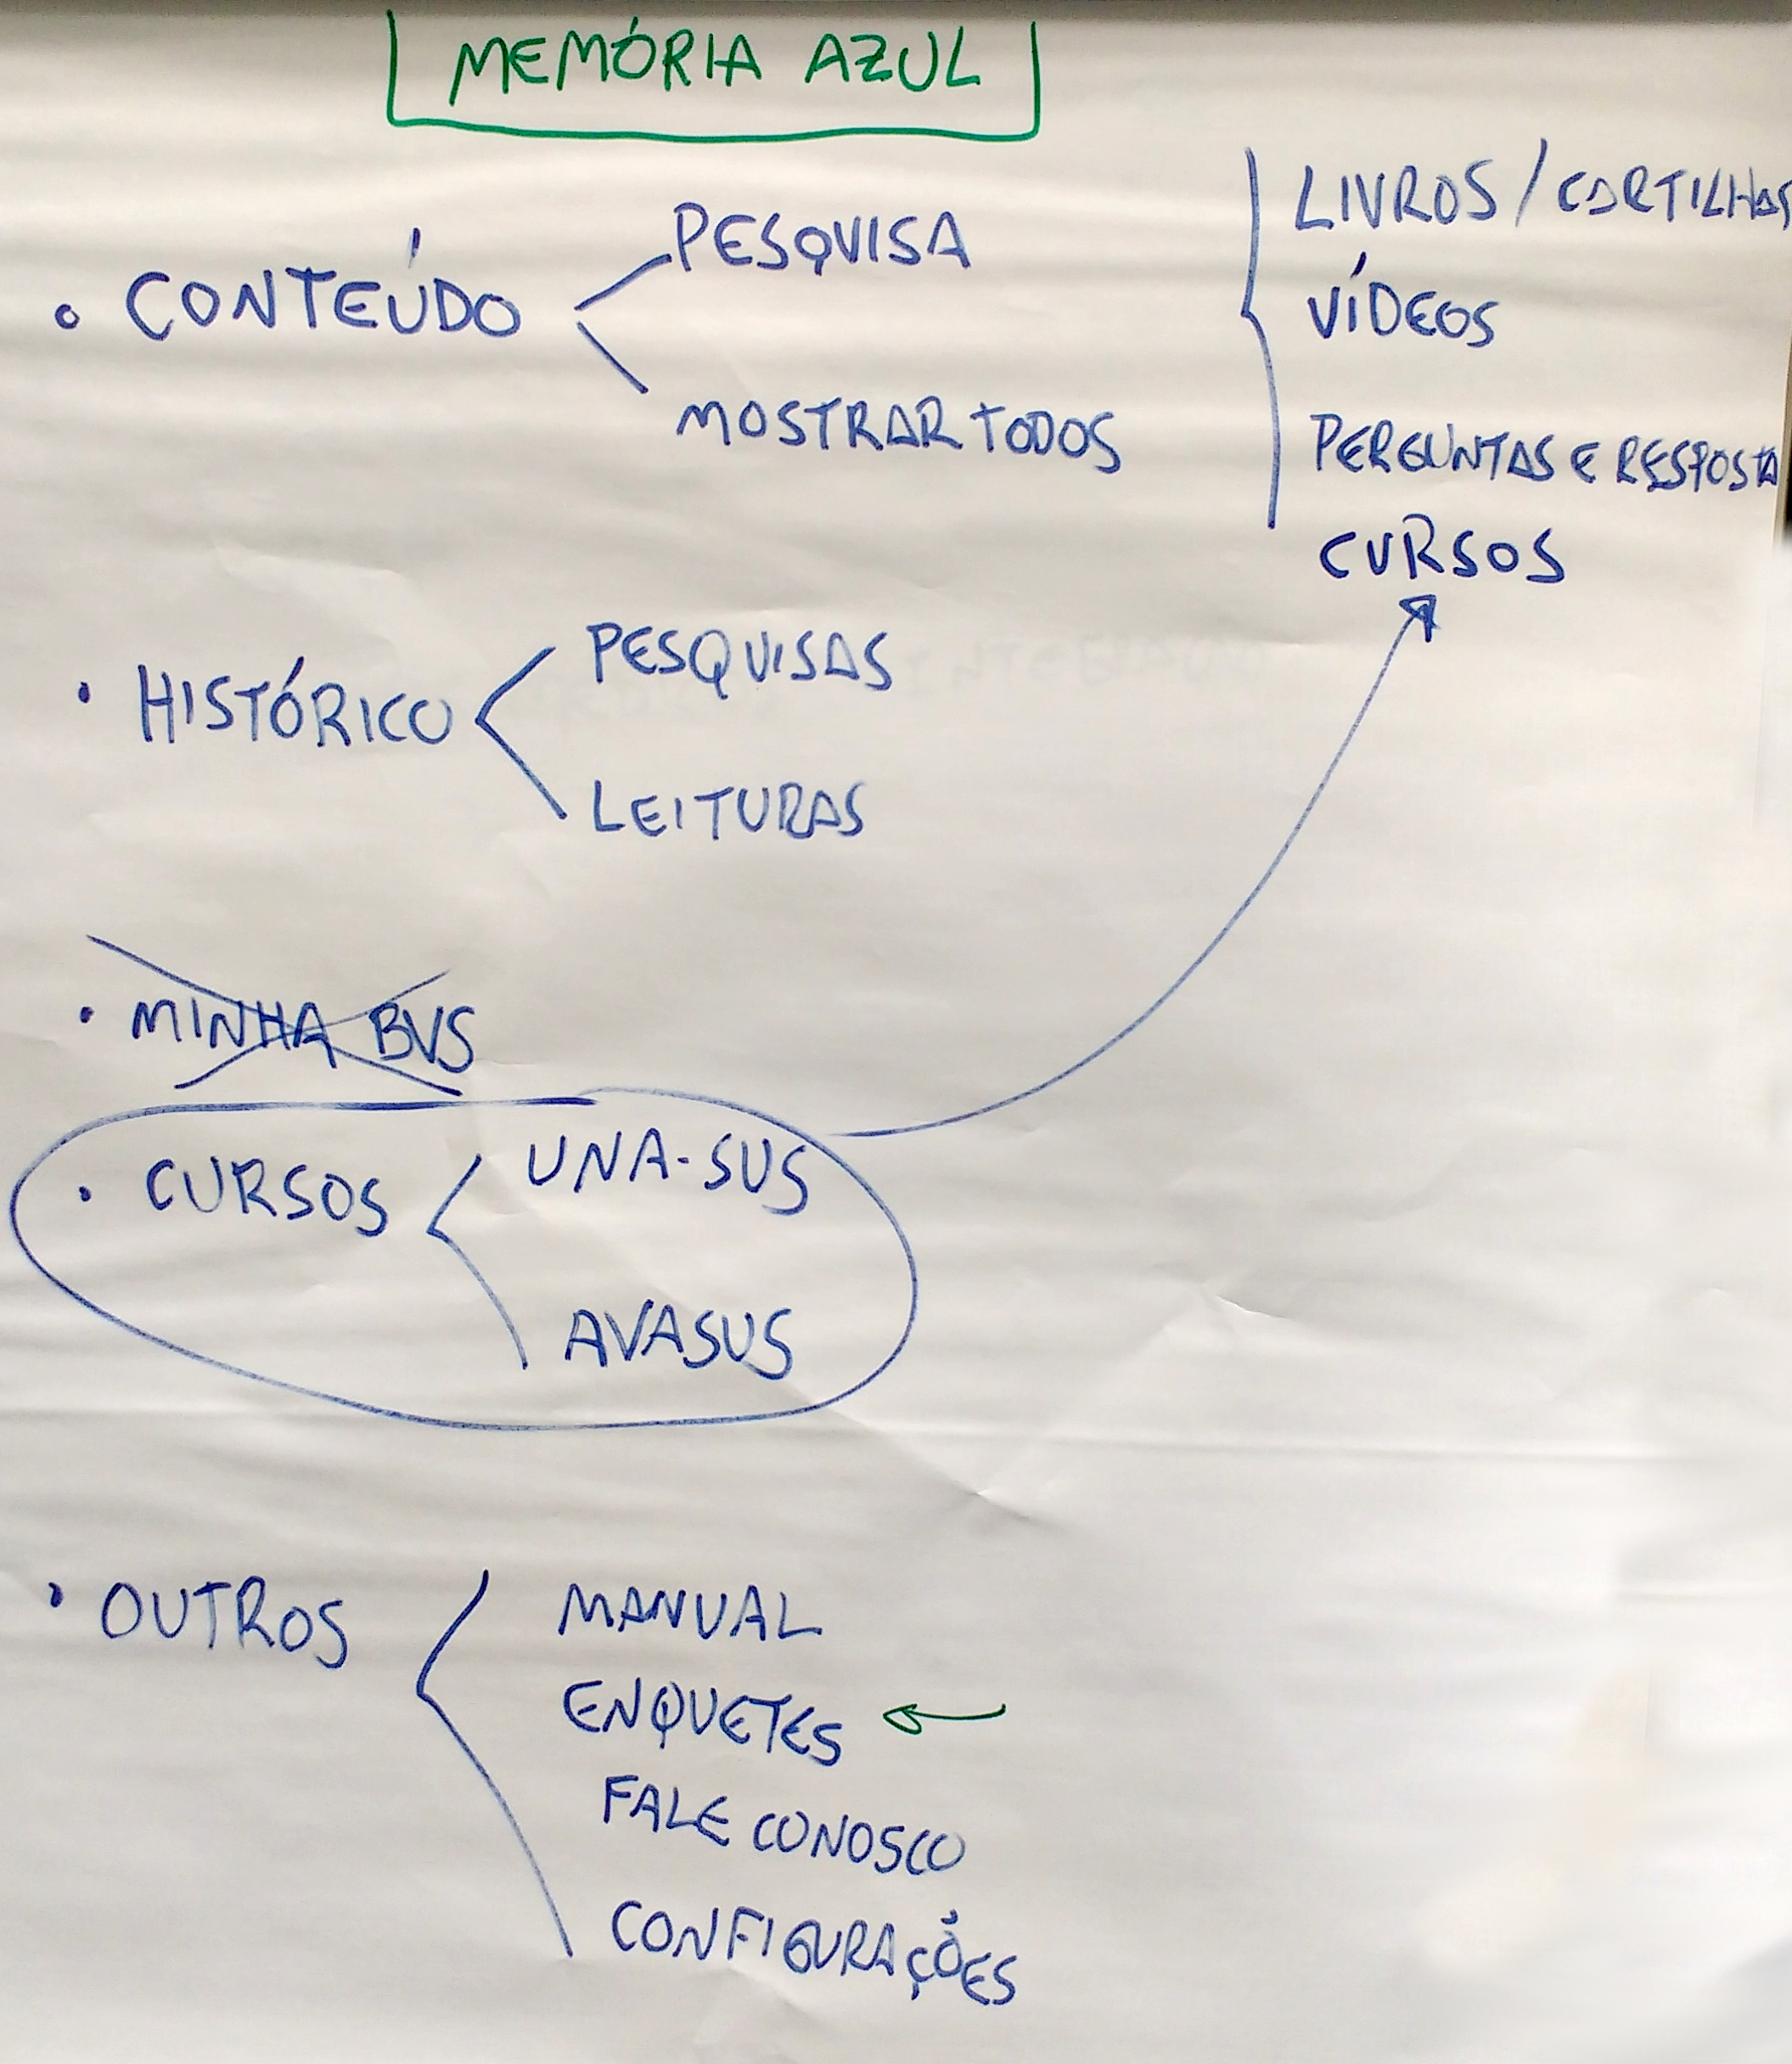 MEMÓRIA AZUL
• CONTEÚDO
PESQUISA
MOSTRAR TODOS
LIVROS / CARTILHAS
VÍDEOS
PERGUNTAS E RESPOSTA
CURSOS
• HISTÓRICO
PESQUISAS
LEITURAS
• MINHA BVS
• CURSOS
UNA-SUS
AVASUS
• OUTROS
MANUAL
ENQUETES
FALE CONOSCO
CONFIGURAÇÕES